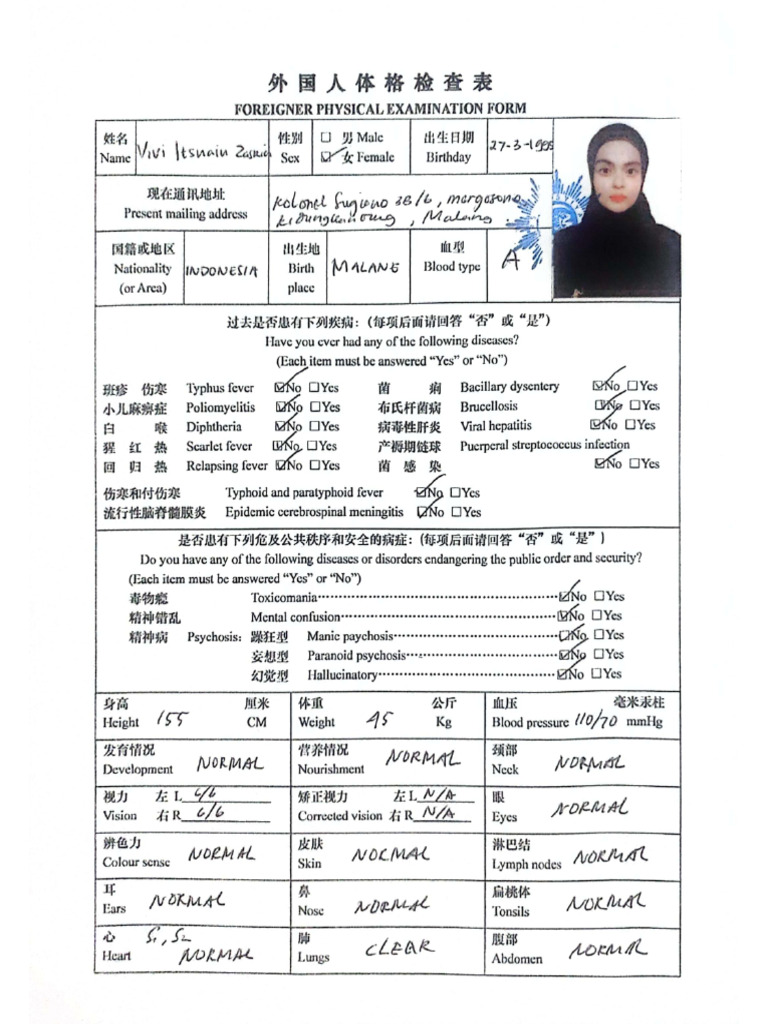 外国人体格检查表
FOREIGNER PHYSICAL EXAMINATION FORM
姓名 Name Vivi Itsnain 性别 Sex ☐ 男 Male ☑ 女 Female 出生日期 Birthday 27-3-1995
现在通讯地址 Present mailing address Kolonel Sugiono 3B/6,
, Malang
国籍或地区 Nationality (or Area) INDONESIA 出生地 Birth place MALANG 血型 Blood type A
过去是否患有下列疾病：(每项后面请回答“否”或“是”)
Have you ever had any of the following diseases?
(Each item must be answered “Yes” or “No”)
班疹 伤寒 Typhus fever ☑No ☐Yes 菌 痢 Bacillary dysentery ☑No ☐Yes
小儿麻痹症 Poliomyelitis ☑No ☐Yes 布氏杆菌病 Brucellosis ☑No ☐Yes
白 喉 Diphtheria ☑No ☐Yes 病毒性肝炎 Viral hepatitis ☑No ☐Yes
猩 红 热 Scarlet fever ☑No ☐Yes 产褥期链球 Puerperal streptococcus infection
回 归 热 Relapsing fever ☑No ☐Yes 菌 感 染 ☑No ☐Yes
伤寒和付伤寒 Typhoid and paratyphoid fever ☑No ☐Yes
流行性脑脊髓膜炎 Epidemic cerebrospinal meningitis ☑No ☐Yes
是否患有下列危及公共秩序和安全的病症：(每项后面请回答“否”或“是”)
Do you have any of the following diseases or disorders endangering the public order and security?
(Each item must be answered “Yes” or “No”)
毒物瘾 Toxicomania ☑No ☐Yes
精神错乱 Mental confusion ☑No ☐Yes
精神病 Psychosis: 躁狂型 Manic paychosis ☑No ☐Yes
妄想型 Paranoid psychosis ☑No ☐Yes
幻觉型 Hallucinatory ☑No ☐Yes
身高 厘米 体重 公斤 血压 毫米汞柱
Height 155 CM Weight 45 Kg Blood pressure 110/70 mmHg
发育情况 营养情况 颈部
Development NORMAL Nourishment NORMAL Neck NORMAL
视力 左 L 6/6 矫正视力 左 L N/A 眼
Vision 右 R 6/6 Corrected vision 右 R N/A Eyes NORMAL
辨色力 皮肤 淋巴结
Colour sense NORMAL Skin NORMAL Lymph nodes NORMAL
耳 鼻 扁桃体
Ears NORMAL Nose NORMAL Tonsils NORMAL
心 S1, S2 肺 腹部
Heart NORMAL Lungs CLEAR Abdomen NORMAL